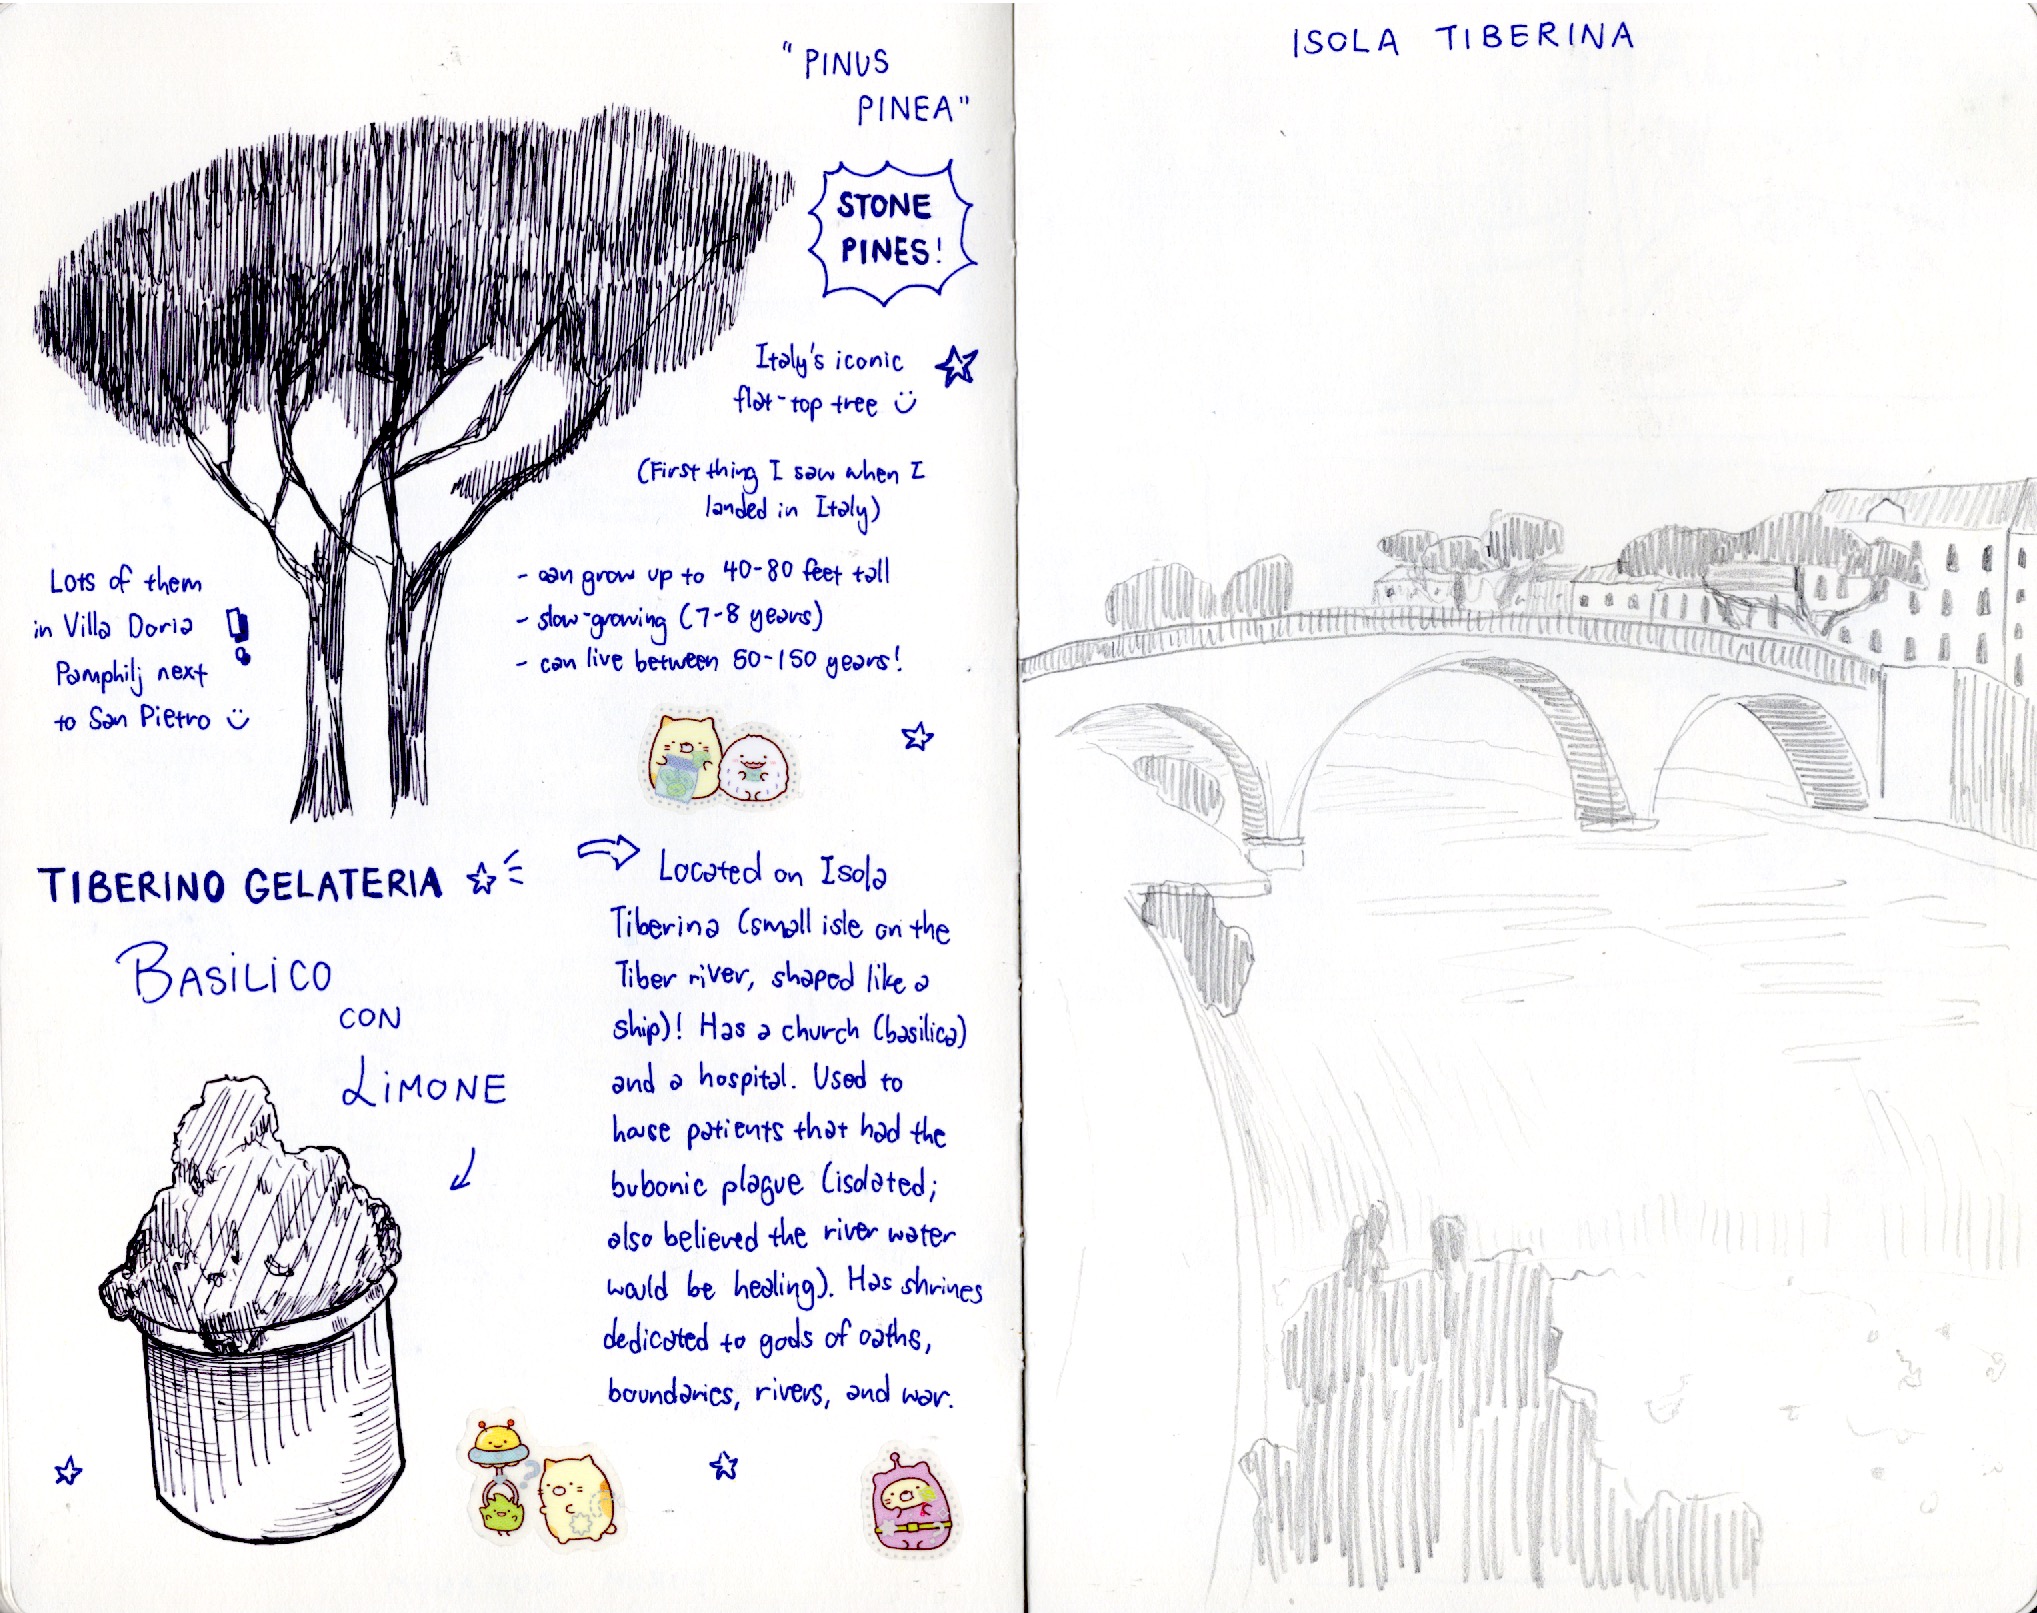 "PINUS
PINEA"
STONE
PINES!
Italy's iconic
flat-top tree
(First thing I saw when I
landed in Italy)
Lots of them
in Villa Doria
Pamphilj next
to San Pietro
- can grow up to 40-80 feet tall
- slow-growing (7-8 years)
- can live between 50-150 years!
TIBERINO GELATERIA
BASILICO
CON
LIMONE
Located on Isola
Tiberina (small isle on the
Tiber river, shaped like a
ship)! Has a church (basilica)
and a hospital. Used to
house patients that had the
bubonic plague (isolated;
also believed the river water
would be healing). Has shrines
dedicated to gods of oaths,
boundaries, rivers, and war.
?
ISOLA TIBERINA